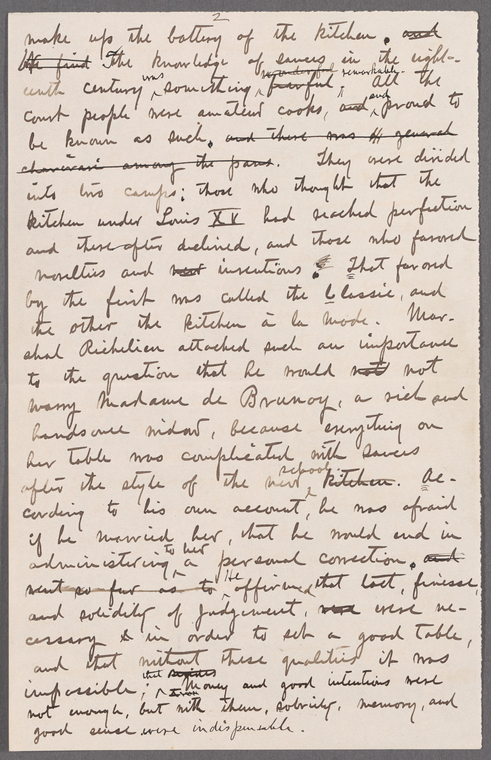 2
make up the battery of the kitchen. and
We find The knowledge of sauces in the eight-
eenth century was something wonderful fearful remarkable. All the
court people were amateur cooks, and and proud to
be known as such, and there was a general
charivari among the pans. They were divided
into two camps; those who thought that the
kitchen under Louis XV had reached perfection
and thereafter declined, and those who favored
novelties and new inventions. That favored
by the first was called the Classic, and
the other the kitchen à la mode. Mar-
shal Richelieu attached such an importance
to the question that he would not not
marry Madame de Brunoy, a rich and
handsome widow, because everything on
her table was complicated with sauces
after the style of the new school kitchen. Ac-
cording to his own account, he was afraid
if he married her, that he would end in
administering to her a personal correction. and
went so far as to He affirmed that tact, finesse,
and solidity of judgement, were ne-
cessary & in order to set a good table,
and that without these qualities it was
impossible; that Money and good intentions were
not enough, but with them, sobriety, memory, and
good sense were indispensable.